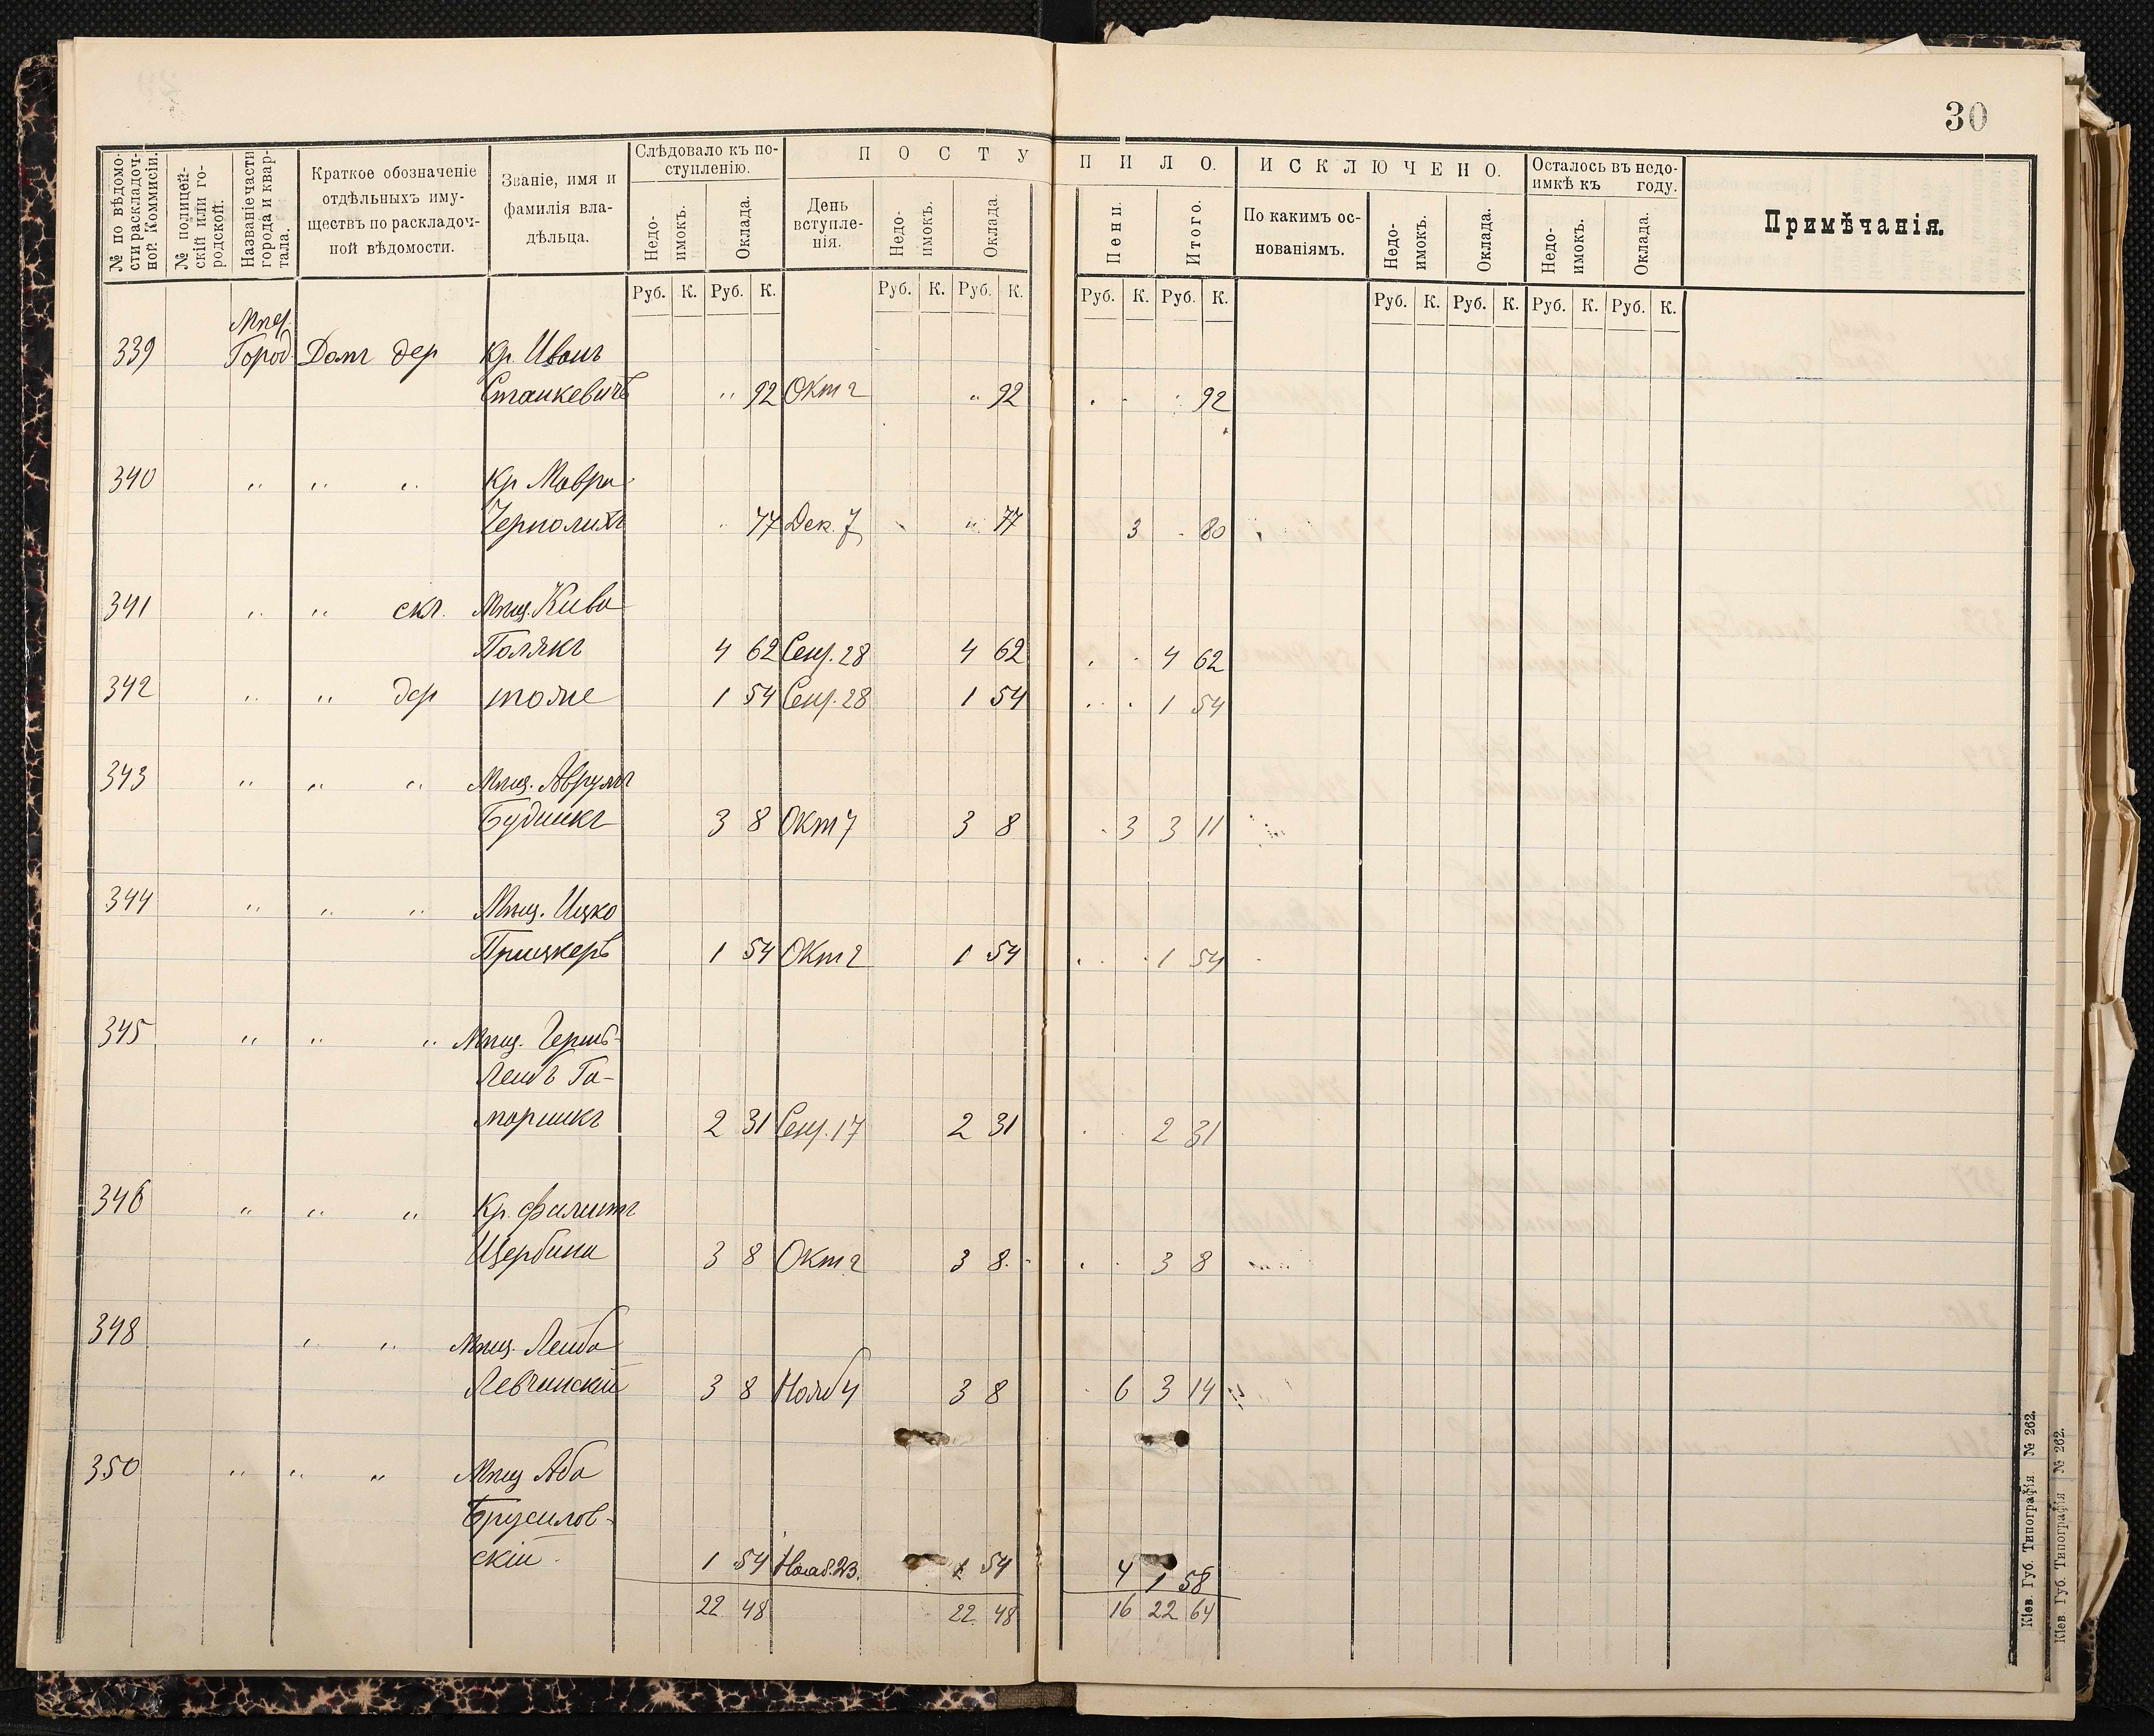 30
№ по вѣдомости раскладочной Коммисіи.
№ полицейскій или городской.
Названіе части города и квартала.
Краткое обозначеніе отдѣльныхъ имуществъ по раскладочной вѣдомости.
Званіе, имя и фамилія владѣльца.
Слѣдовало къ поступленію.
Недоимокъ.
Оклада.
ПОСТУПИЛО.
День вступленія.
Недоимокъ.
Оклада.
Пени.
Итого.
ИСКЛЮЧЕНО.
По какимъ основаніямъ.
Недоимокъ.
Оклада.
Осталось въ недоимкѣ къ году.
Недоимокъ.
Оклада.
Примѣчанія.
Руб. К. Руб. К. Руб. К. Руб. К. Руб. К. Руб. К. Руб. К. Руб. К. Руб. К. Руб. К.
339 Город. Домъ дер Кр. Иванъ
Станкевичъ " 92 Окт 2 " 92 . . . 92
340 " " " Кр Мавра
77 Дек. 7 " 77 3 . 80
341 " " скл. Мѣщ. Кива
Полякъ 4 62 Сен. 28 4 62 . . 4 62
342 " " дер тоже 1 54 Сен. 28 1 54 . . 1 54
343 " " " Мѣщ. Аврумъ
Будникъ 3 8 Окт 7 3 8 . 3 3 11
344 " " " Мѣщ. Ицко
Прицкеръ 1 54 Окт 2 1 54 . . 1 54
345 " " " Мѣщ. Герш-
Лейб Га-
поршикъ 2 31 Сен. 17 2 31 . . 2 31
346 " " " Кр. Филипъ
Щербина 3 8 Окт 2 3 8 . . 3 8
348 " " Мѣщ. Лейба
Левчинскій 3 8 Нояб 4 3 8 . 6 3 14
350 " " " Мѣщ Аба
Брусилов-
скій 1 54 Нояб. 23. 1 54 4 1 58
22 48 22 48 16 22 64
Кіев. Губ. Типографія № 262.
Кіев. Губ. Типографія № 262.